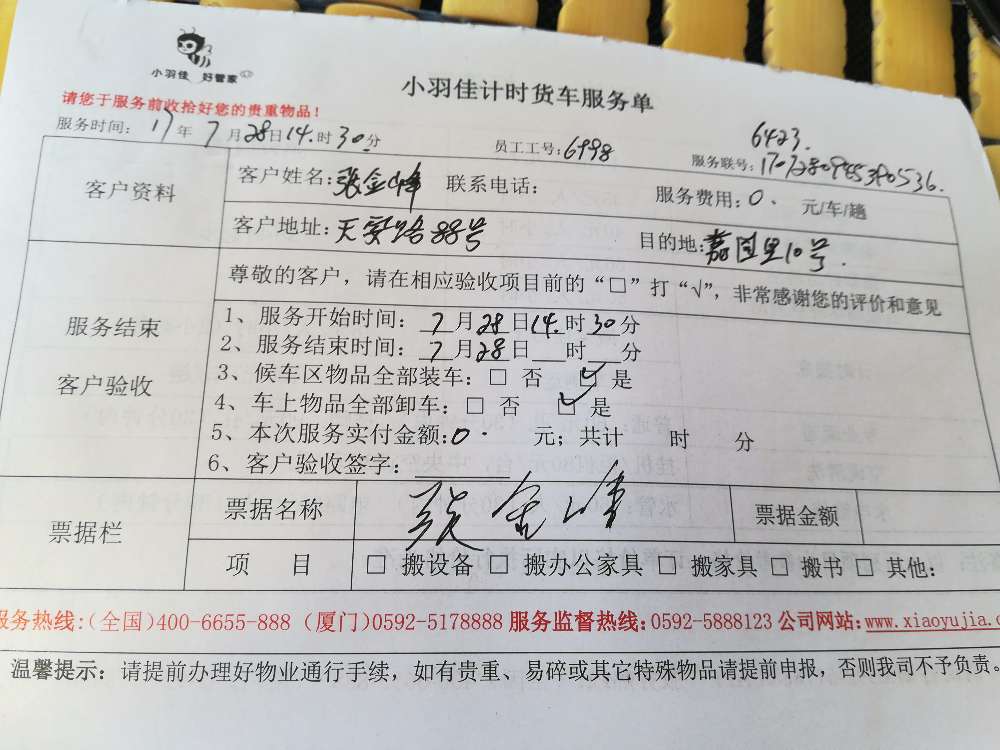 小羽佳 好管家
小羽佳计时货车服务单
请您于服务前收拾好您的贵重物品！
服务时间： 17年7月28日14.时30分 员工工号：6998 6423.
服务联号：
客户资料 客户姓名：张金峰 联系电话： 服务费用：0. 元/车/趟
客户地址：天安路88号 目的地：嘉园里10号.
尊敬的客户，请在相应验收项目前的“□”打“√”，非常感谢您的评价和意见
服务结束
客户验收
1、服务开始时间：7月28日14.时30分
2、服务结束时间：7月28日__时__分
3、候车区物品全部装车：□ 否 ☑ 是
4、车上物品全部卸车：□ 否 ☑ 是
5、本次服务实付金额：0. 元；共计 时 分
6、客户验收签字：
张金峰
票据栏 票据名称 票据金额
项 目 □ 搬设备 □ 搬办公家具 □ 搬家具 □ 搬书 □ 其他：
服务热线：(全国)400-6655-888 (厦门)0592-5178888 服务监督热线：0592-5888123 公司网站：www.xiaoyujia.c
温馨提示：请提前办理好物业通行手续，如有贵重、易碎或其它特殊物品请提前申报，否则我司不予负责。